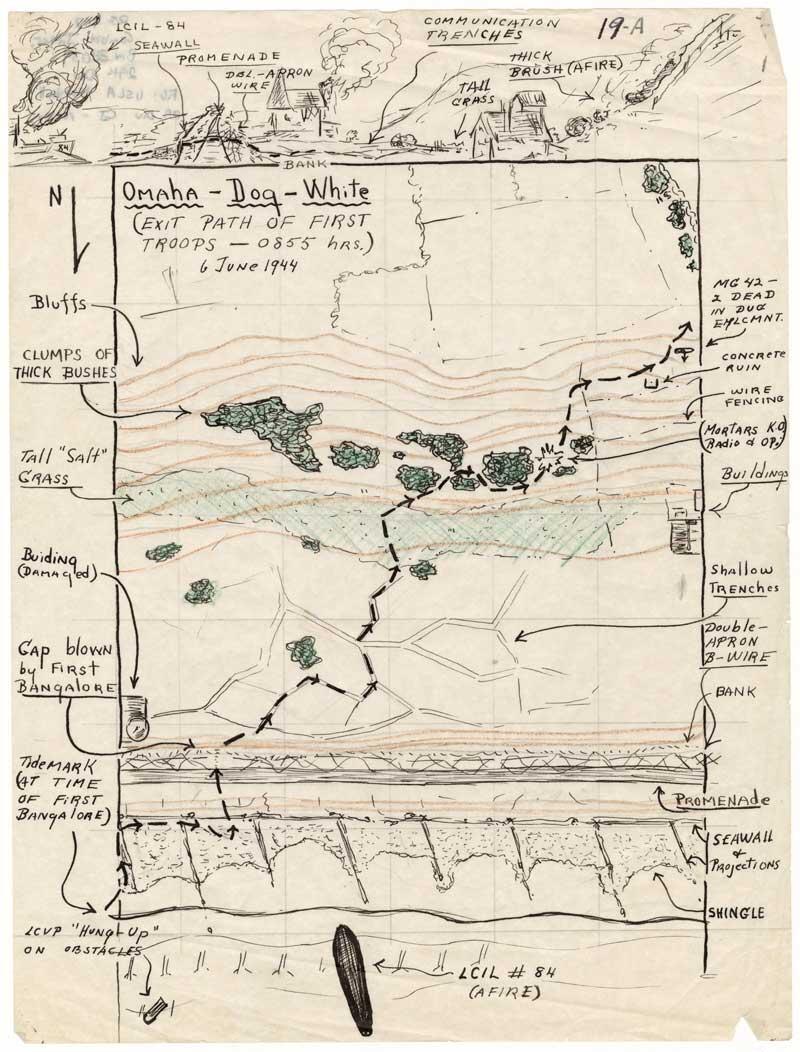 LCIL - 84
SEAWALL
PROMENADE
DBL.-APRON
WIRE
COMMUNICATION
TRENCHES
19-A
TALL
GRASS
THICK
BRUSH (AFIRE)
84
BANK
N
OMAHA - Dog - White
(EXIT PATH OF FIRST
TROOPS - 0855 hrs.)
6 June 1944
Bluffs
CLUMPS OF
THICK BUSHES
Tall "Salt"
GRASS
Buiding
(Damaged)
Gap blown
by First
BANGALORE
TideMARK
(AT TIME
OF FIRST
BANGALORE)
LCVP "Hung-Up"
ON OBSTACLES
MG 42 -
2 DEAD
IN DUG
EMLCMNT.
CONCRETE
RUIN
WIRE
FENCING
(MORTARS K.O.
Radio & OPs)
Buildings
Shallow
TRENCHES
Double-
APRON
B-WIRE
BANK
PROMENADE
SEAWALL
&
PROJECTIONS
SHINGLE
LCIL # 84
(AFIRE)